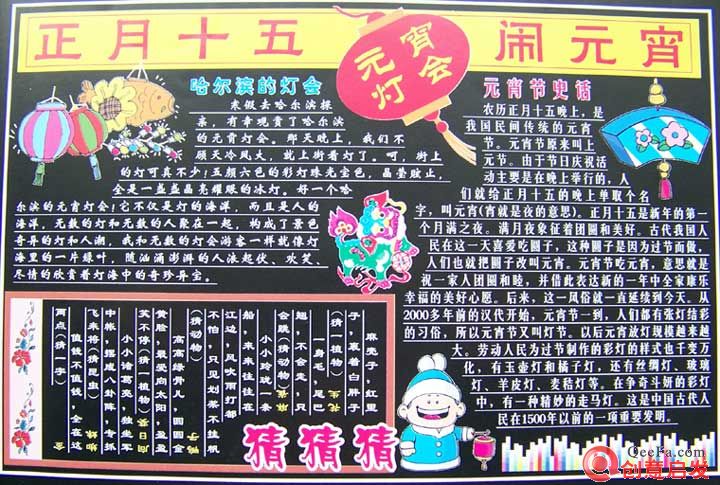 正月十五 闹元宵
元宵
灯会
哈尔滨的灯会
寒假去哈尔滨探
亲，有幸观赏了哈尔滨
的元宵灯会。那天晚上，我们不
顾天冷风大，就上街看灯了。呵，街上
的灯可真不少！五颜六色的彩灯珠光宝色，晶莹放止，
全是一盏盏晶亮耀眼的冰灯。好一个哈
尔滨的元宵灯会！它不仅是灯的海洋，而且是人的
海洋，无数的灯和无数的人聚在一起，构成了景色
奇异的灯和人潮，我和无数的灯会游客一样就像灯
海里的一片绿叶，随汹涌澎湃的人浪起伏、欢笑、
尽情的欣赏着灯海中的奇珍异宝。
元宵节史话
农历正月十五晚上，是
我国民间传统的元宵
节。元宵节原来叫上
元节。由于节日庆祝活
动主要是在晚上举行的，人
们就给正月十五的晚上单取个名
字，叫元宵(宵就是夜的意思)。正月十五是新年的第一
个月满之夜。满月夜象征着团圆和美好。古代我国人
民在这一天喜爱吃圆子，这种圆子是因为过节而做，
人们也就把圆子改叫元宵。元宵节吃元宵，意思就是
祝一家人团圆和睦，并借此表达新的一年中全家康乐
幸福的美好心愿。后来，这一风俗就一直延续到今天。从
2000多年前的汉代开始，元宵节一到，人们都有张灯结彩
的习俗，所以元宵节又叫灯节。以后元宵放灯规模越来越
大。劳动人民为过节制作的彩灯的样式也千变万
化，有玉壶灯和橘子灯，还有丝绸灯、玻璃
灯、羊皮灯、麦秸灯等。在争奇斗妍的彩灯
中，有一种精妙的走马灯。这是中国古代人
民在1500年以前的一项重要发明。
麻壳子，红里
子，裹着白胖子
(猜一植物)
一身毛，尾巴
翘，不会走，只
会跳(猜动物)
小小玲珑一条
船，来来往往在
江边，风吹雨打都
不怕，只见划桨不挂帆
(猜动物)
高高绿骨儿，圆圆金
黄脸，最爱向太阳，盈盈
笑不停(猜一植物)
小小诸葛亮，独坐军
中帐，摆成八卦阵，专抓
飞来将(猜昆虫)
值钱不值钱，全在这
两点(猜一字)
猜猜猜
OeeFa.com
创意启发